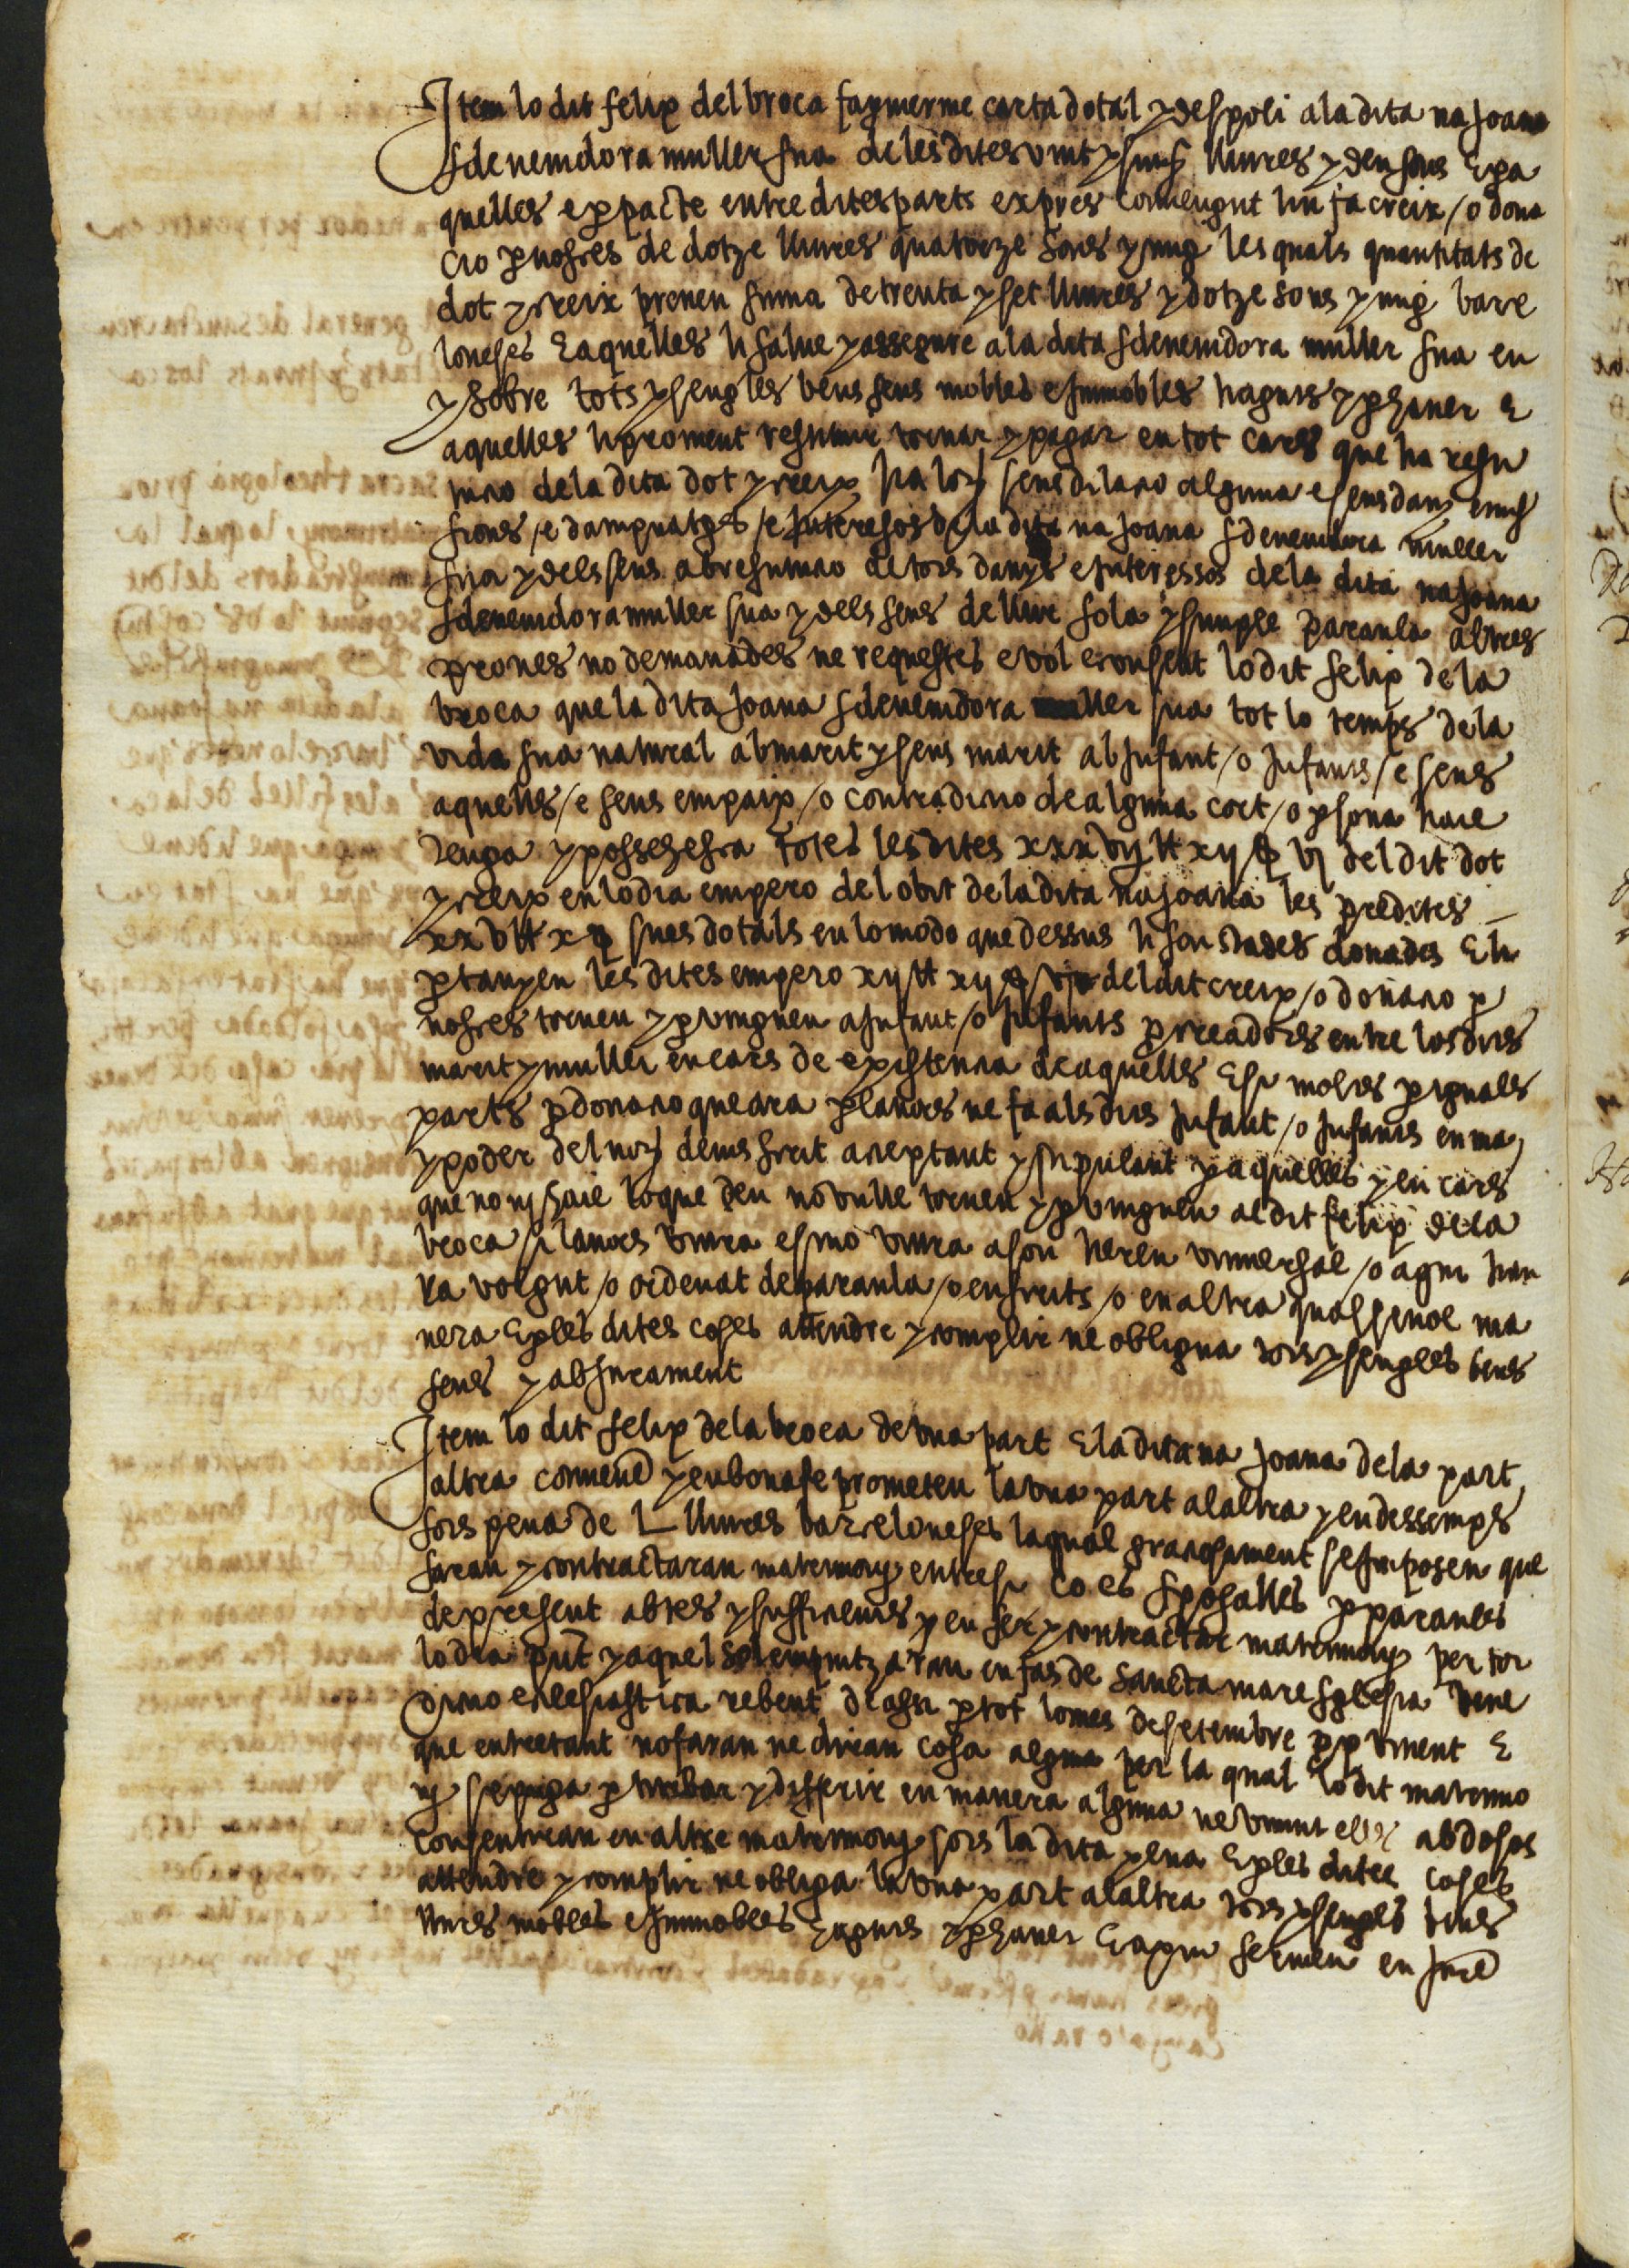 Item lo dit felip delbroca fa y ferme carta dotal y despoli a la dita na Joana
sdevenidora muller sua de les dites vint y sinch lliures y deu sous E pa
quelles e per pacte entre dites parts expres convengut lin fa creix / o dona
cio per nosces de dotze lliures quatorze sous y mig les quals quantitats de
dot y creix prenen suma de trenta y set lliures y dotze sous y mig barce
loneses E aquelles li salve y assegure a la dita sdevenidora muller sua en
y sobre tots y sengles bens seus mobles e Immobles haguts y per haver E
aquelles li promet restituir tornar y pagar en tot cars que ha resti
tucio de la dita dot y creix ha loch sens dilacio alguna e sens dany mis
sions / e dampnatges / e Interesos de la dita na Joana sdevenidora muller
sua y dels seus a bresutucio de tots danys e Interessos de la dita na Joana
sdevenidora muller sua y dels seus de llur sola y simple paraula altres
proves no demanades ne requestes e vol e consent lo dit felip de la
broca que la dita Joana sdevenidora muller sua tot lo temps de la
vida sua natural ab marit y sens marit ab Infant / o Infants / e sens
aquells / e sens empaix / o contradictio de alguna cort / o persona haie
tenga y possehesca totes les dites xxxvij ll xij ss vj del dit dot
y creix en lo dia empero del obit de la dita na Joana les predites
xxv ll x ss sues dotals en lo modo que dessus li son stades donades E li
pertanyen les dites empero xij ll xij ss vj del dit creix / o donatio per
nosces tornen y pervinguen a Infant / o Infants procreadors entre los dits
marit y muller en cars de existencia de aquelles E si molts per iguals
parts per donatio que ara per lavors ne fa als dits Infant / o Infants en ma
y poder del not devis scrit acceptant y stipulant per aquelles y en cars
que no ni haie lo que deu no vulle tornen y pervinguen al dit felip de la
broca si lavors viura e si no viura a son hereu universal / o a qui hau
ra volgut / o ordenat de paraula / o en scrits / o en altra qualsevol ma
nera E per les dites coses attendre y complir ne obligua tots y sengles bens
seus y ab Jurament
Item lo dit felip de la broca de vna part E la dita na Joana de la part
altra convenen y en bona fe prometen la vna part a la altra y endessemps
sots pena de L lliures barceloneses la qual graciosament se Imposen que
faran y contractaran matrimoni entre si ço es sposalles per paraules
de present abtes y sufficients y en fer y contractar matrimoni per tot
lo dia present y aquel solempnitzaran en fas de sancta mare sglesia bene
dictio ecclesiastica rebent de assi per tot lo mes de setembre per pervinent E
que entretant no faran ne diran cosa alguna per la qual lo dit matrimo
ni se puga perturbar y differir en manera alguna ne vnunt ells abdosos
consentiran en altre matrimoni sots la dita pena E per les dites coses
attendre y complir ne obliga la vna part a la altra tots y sengles bens
llurs mobles e Immobles haguts y per haver E a qui fermen en Jure